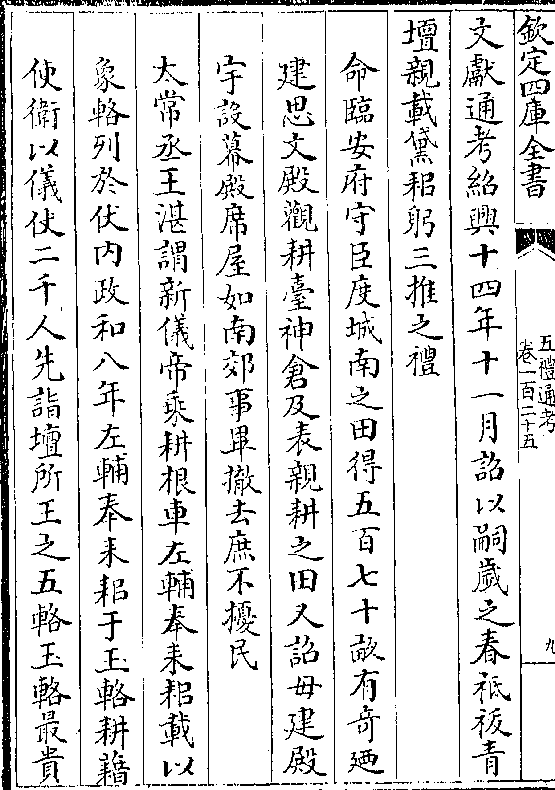 欽定四庫全書
五禮通考
卷一百二十五
九
文獻通考紹興十四年十一月詔以嗣歲之春祗祓青
壇親載黛耜躬三推之禮
命臨安府守臣度城南之田得五百七十畝有奇廼
建思文殿觀耕臺神倉及表親耕之田又詔毋建殿
宇設幕殿席屋如南郊事畢撤去庶不擾民
太常丞王湛謂新儀帝乘耕根車左輔奉耒耜載以
象輅列於仗內政和八年左輔奉耒耜于玉輅耕藉
使衛以儀仗二千人先詣壇所王之五輅玉輅最貴